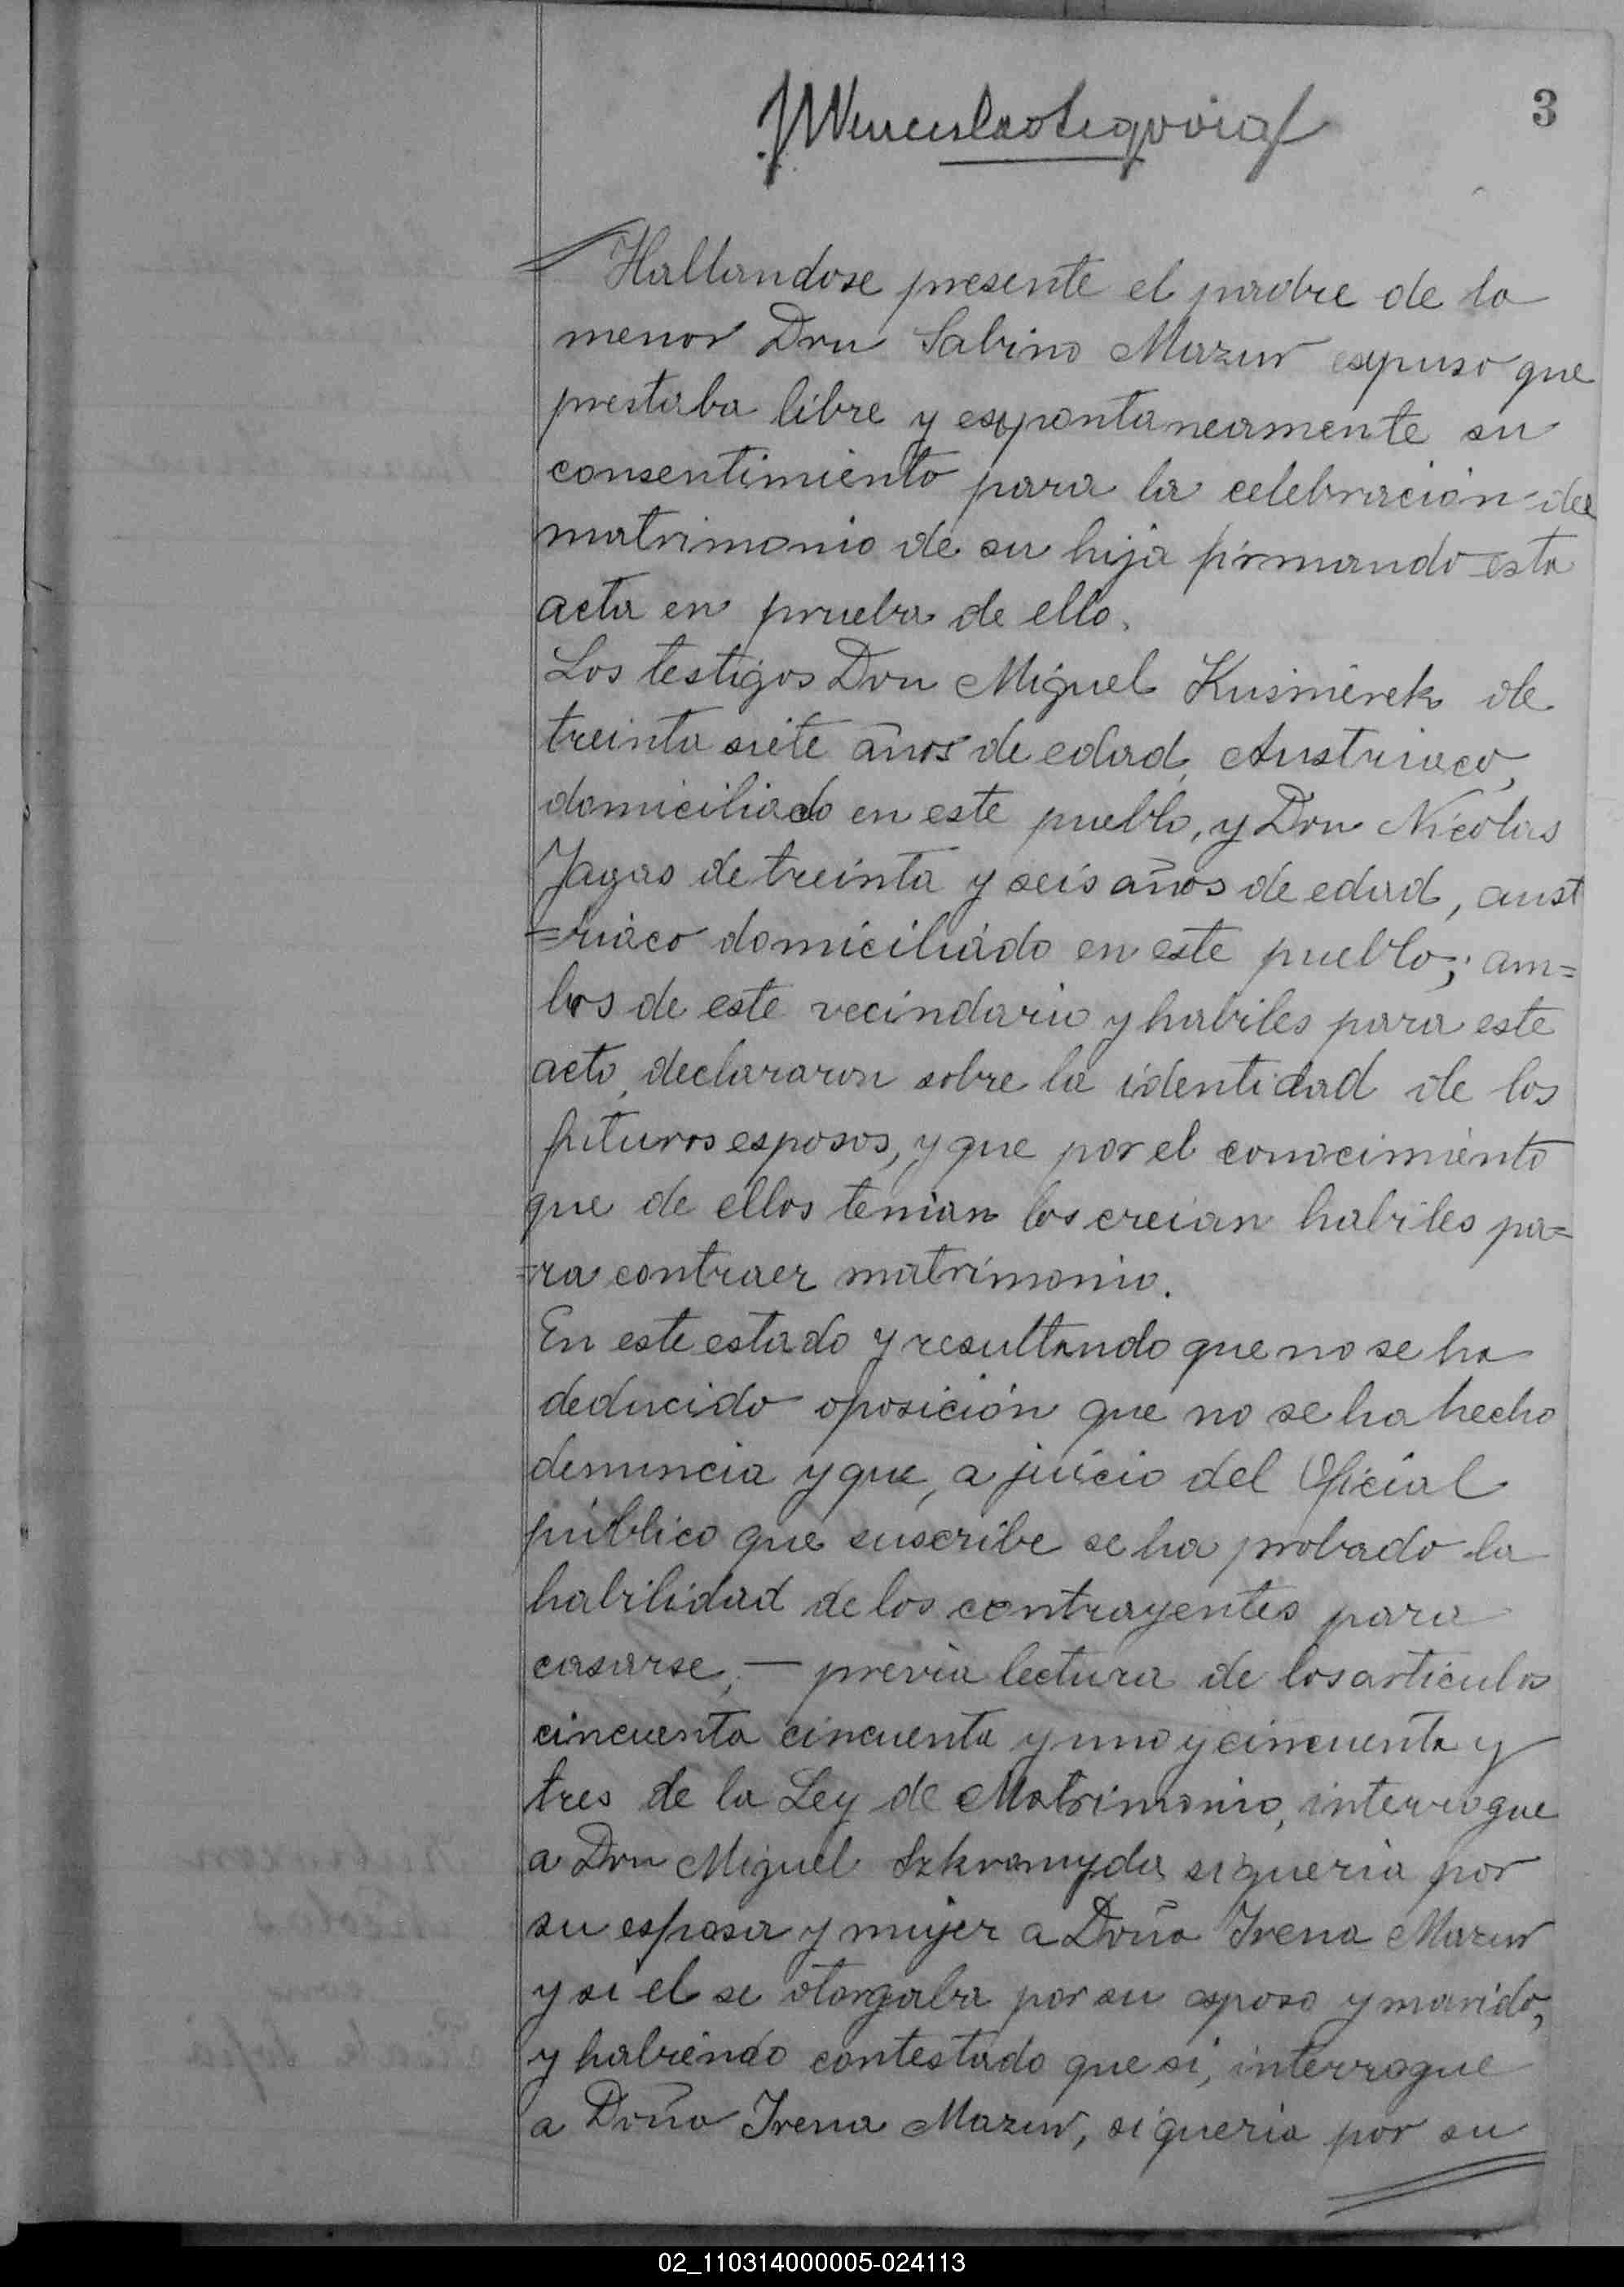 3
Hallandose presente el padre de la
menor Don Sabino Mazur espuso que
prestaba libre y espontaneamente su
consentimiento para la celebración del
matrimonio de su hija firmando esta
acta en prueba de ello.
Los testigos Don Miguel Kusmierek de
treinta siete años de edad, Austriaco,
domiciliado en este pueblo, y Don Nicolas
Jagas de treinta y seis años de edad, aust
=riaco domiciliado en este pueblo; am=
bos de este vecindario y habiles para este
acto, declararon sobre la identidad de los
futuros esposos, y que por el conocimiento
que de ellos tenian los creian habiles pa=
=ra contraer matrimonio.
En este estado y resultando que no se ha
deducido oposición que no se ha hecho
denuncia y que, a juicio del Oficial
público que suscribe se ha probado la
habilidad de los contrayentes para
casarse, — previa lectura de los articulos
cincuenta cincuenta y uno y cincuenta y
tres de la Ley de Matrimonio, interrogue
a Don Miguel Szkromyda si queria por
su esposa y mujer a Doña Irena Mazur
y si el se otorgaba por su esposo y marido,
y habiendo contestado que si, interrogue
a Doña Irena Mazur, si queria por su
02_110314000005-024113